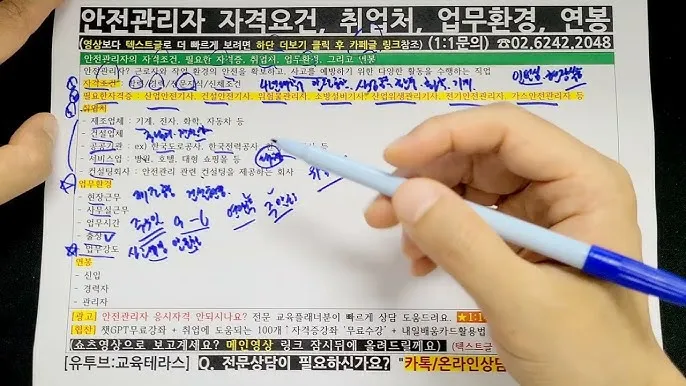 안전관리자 자격요건, 취업처, 업무환경, 연봉
(영상보다 텍스트글로 더 빠르게 보려면 하단 더보기 클릭 후 카페글 링크참조) (1:1문의) ☎02.6242.2048
안전관리자의 자격조건, 필요한 자격증, 취업처, 업무환경, 그리고 연봉
안전관리자? 근로자와 작업 환경의 안전을 확보하고, 사고를 예방하기 위한 다양한 활동을 수행하는 직업
자격조건 : 학력/경력/전문지식/신체조건
필요한자격증 : 산업안전기사, 건설안전기사, 위험물관리자, 소방설비기사, 산업위생관리기사, 전기안전관리자, 가스안전관리자 등
취업처
- 제조업체 : 기계, 전자, 화학, 자동차 등
- 건설업체
- 공공기관 : ex) 한국도로공사, 한국전력공사, 등
- 서비스업 : 병원, 호텔, 대형 쇼핑몰 등
- 컨설팅회사 : 안전관리 관련 컨설팅을 제공하는 회사
업무환경
- 현장근무
- 사무실근무
- 업무시간 주5일 9-6
- 출장
- 업무강도
연봉
- 신입
- 경력자
- 관리자
[광고] 안전관리자 응시자격 안되시나요? 전문 교육플래너분이 빠르게 상담 도움드려요. ★1:1
[협찬] 챗GPT무료강좌 + 취업에 도움되는 100개 자격증강좌 '무료수강' + 내일배움카드활용법
(쇼츠영상으로 보고계세요? 메인영상 링크 잠시뒤에 올려드릴께요) (텍스트글
[유투브:교육테라스] Q. 전문상담이 필요하신가요? "카톡/온라인상담